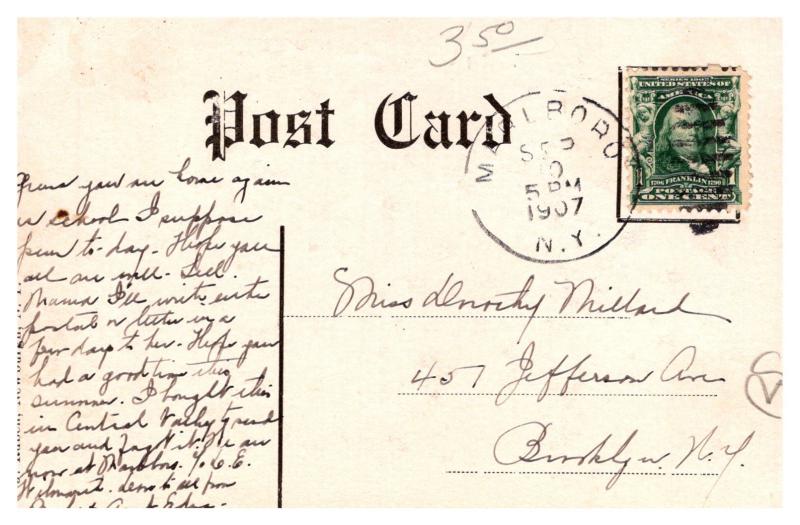 3.50
Post Card
MARLBORO
SEP
10
5 PM
1907
N.Y.
SERIES 1902
UNITED STATES OF
AMERICA
1706 FRANKLIN 1790
POSTAGE
ONE CENT
you are home again
school I suppose
to-day. Hope you
all are well. Tell
Mama I'll write either
postal or letter in a
few days to her. Hope you
had a good time this
summer. I bought this
in Central Valley to send
you and forgot it. We are
now at Marlboro. % C. E.
love to all from
Miss Dorothy Millard
457 Jefferson Ave
Brooklyn. N.Y.